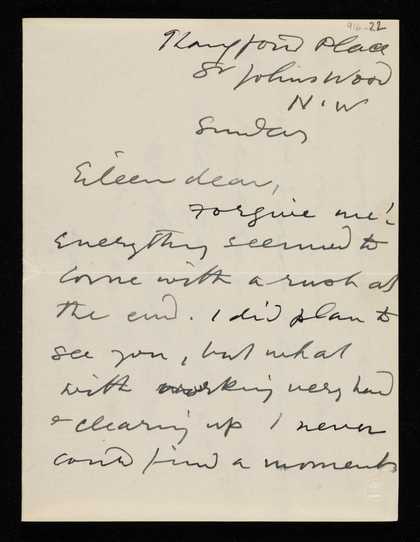 916-22
Place
St Johns Wood
N.W
Sunday
Eileen dear,
Forgive me!
Everything seemed to
come with a rush at
the end. I did plan to
see you, but what
with working very hard
& clearing up I never
could find a moment